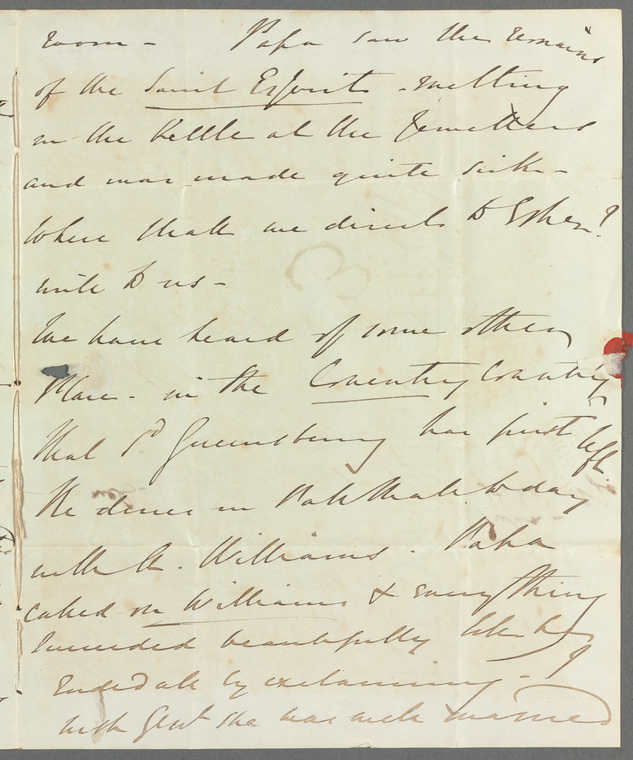 room - Papa saw the remains
of the Saint Esprit - melting
in the Kettle at the Jewellers
and was made quite sick -
Where shall we direct to Esher?
write to us -
We have heard of some other
Place - in the Coventry Country
that Ld Guernsbury has first left
He dines in Pall Mall to day
with A. Williams. Papa
called on Williams & everything
succeeded beautifully
ended all by exclaiming - I
wish she was well married